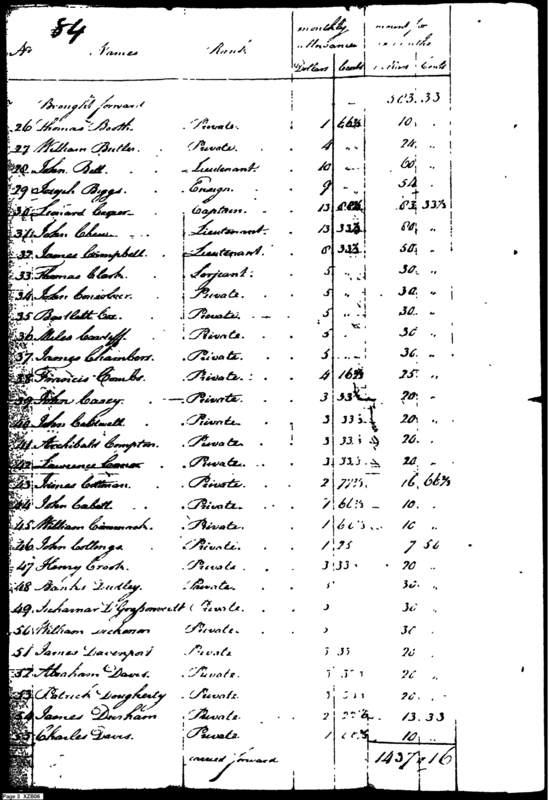 84
monthly amount for
No Names Rank Allowance months
Dollars Cents Cents
Brought forward 503.33
26 Thomas Booth Private 1 66⅔ 10
27 William Butler Private 4 24
28 John Bell Lieutenant 10 60
29 Joseph Biggs Ensign 9 54
30 Leonard Cooper Captain 13 83 33⅓
31 John Chew Lieutenant 13 33⅓ 80
32 James Campbell Lieutenant 8 33⅓ 50
33 Thomas Clark Serjeant 5 30
34 John Private 5 30
35 Bartlett Cox Private 5 30
36 Miles Private 5 30
37 James Chambers Private 5 30
38 Francis Combs Private 4 16⅔ 25
39 John Casey Private 3 33⅓ 20
40 John Caldwell Private 3 33⅓ 20
41 Archibald Compton Private 3 33⅓ 20
42 Lawrence Private 3 33⅓ 20
43 Private 2 77⅔ 16 66⅔
44 John Cabell Private 1 66⅔ 10
45 William Private 1 66⅔ 10
46 John Collings Private 1 25 7 50
47 Henry Crook Private 3 33 20
48 Banks Dudley Private 5 30
49 Private 30
50 William Dickerson Private 30
51 James Davenport Private 3 33 20
52 Abraham Davis Private 3 20
53 Patrick Dougherty Private 3 20
54 James Private 2 13.33
55 Charles Davis Private 1 10
carried forward 1437.16
Page 3 XZB06